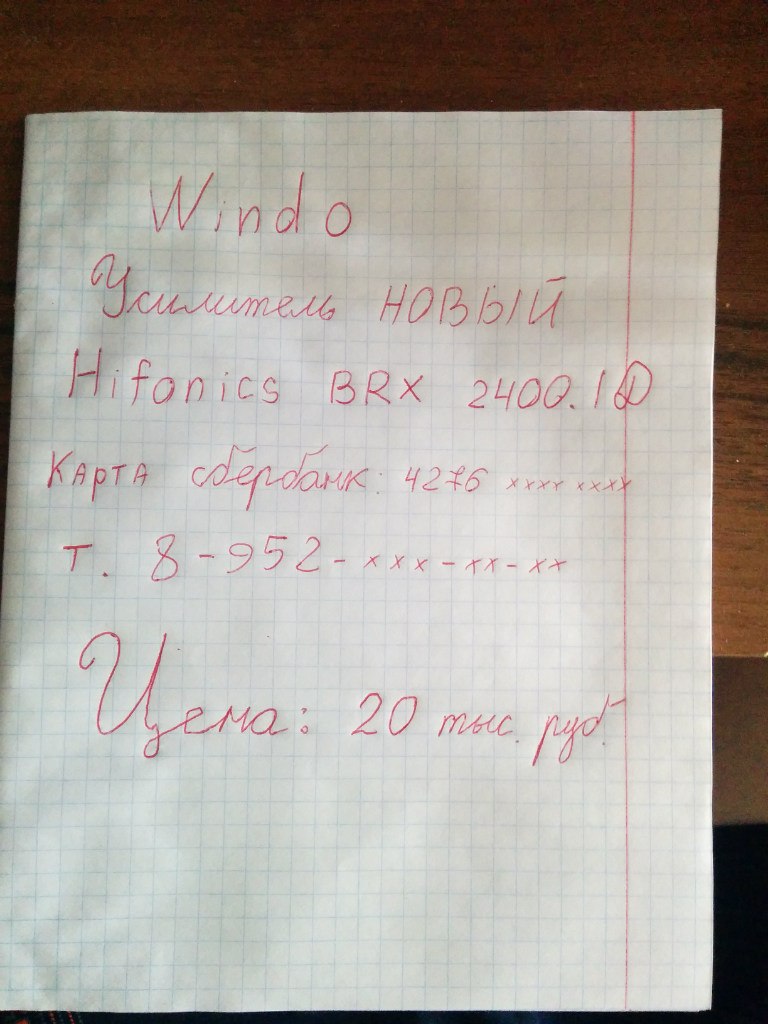 Windo
Усилитель НОВЫЙ
Hifonics BRX 2400.1D
Карта сбербанк: 4276 xxxx xxxx
т. 8-952-xxx-xx-xx
Цена: 20 тыс. руб.